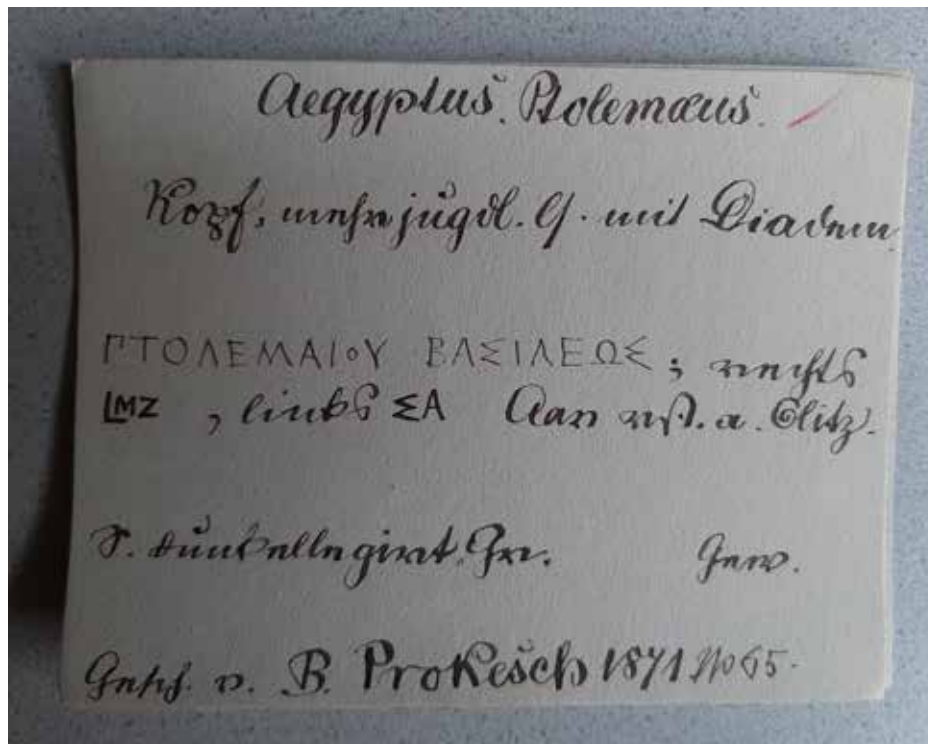 Aegyptus. Ptolemæus.
Kopf, mehr jugdl. G. mit Diadem
ΠΤΟΛΕΜΑΙΟΥ ΒΑΣΙΛΕΩΣ; rechts
LMZ, links ΣΑ Aar a. Blitz.
S. dunkel legirt. Gr. Gew.
Gesch. v. B. Prokesch 1871 No 65.